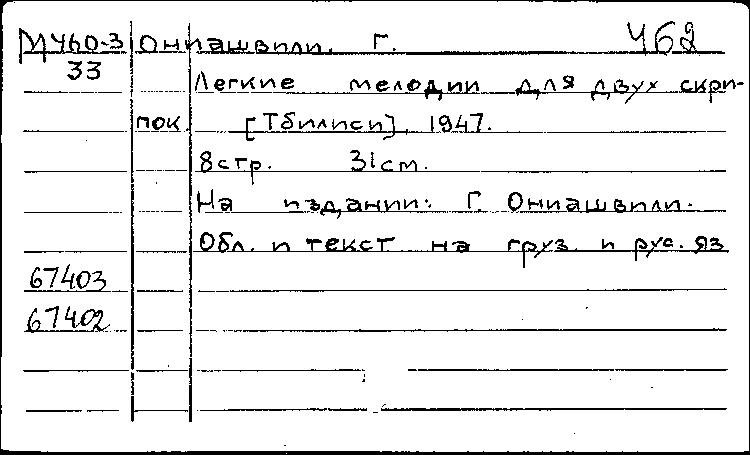 М460-3 Ониашвили. Г. 462
33
Легкие мелодии для двух скри-
пок. [Тбилиси], 1947.
8стр. 31см.
На издании: Г. Ониашвили.
Обл. и текст на груз. и рус. яз
67403
67402